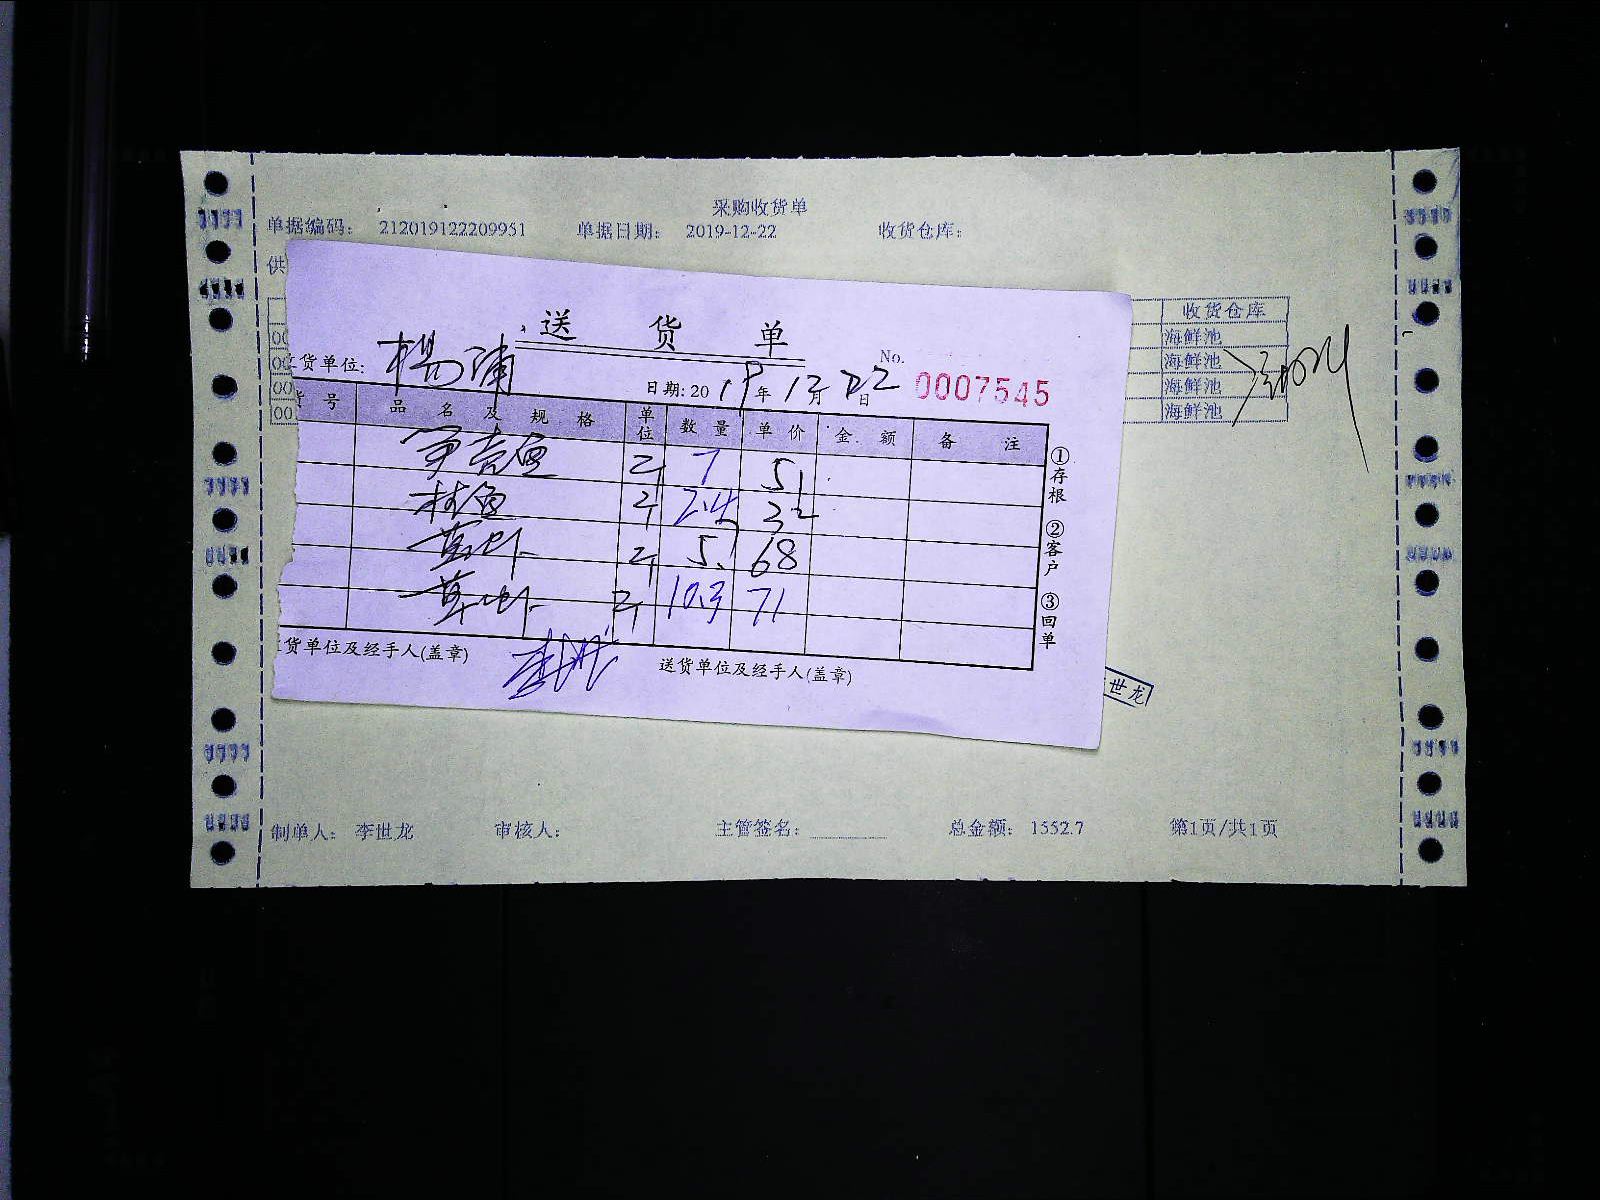 采购收货单
单据编码: 212019122209951 单据日期: 2019-12-22 收货仓库:
供
收货仓库
00 海鲜池
00 海鲜池
00 海鲜池
00 海鲜池
送 货 单
货单位: 杨浦
日期: 2019年12月22日 No. 0007545
号 品名及规格 单位 数量 单价 金额 备注
斤 7 51
鱼 斤 2.4 32
虾 斤 5.1 68
草虾 斤 10.3 71
①存根 ②客户 ③回单
货单位及经手人(盖章) 送货单位及经手人(盖章)
世龙
制单人: 李世龙 审核人: 主管签名: 总金额: 1552.7 第1页/共1页